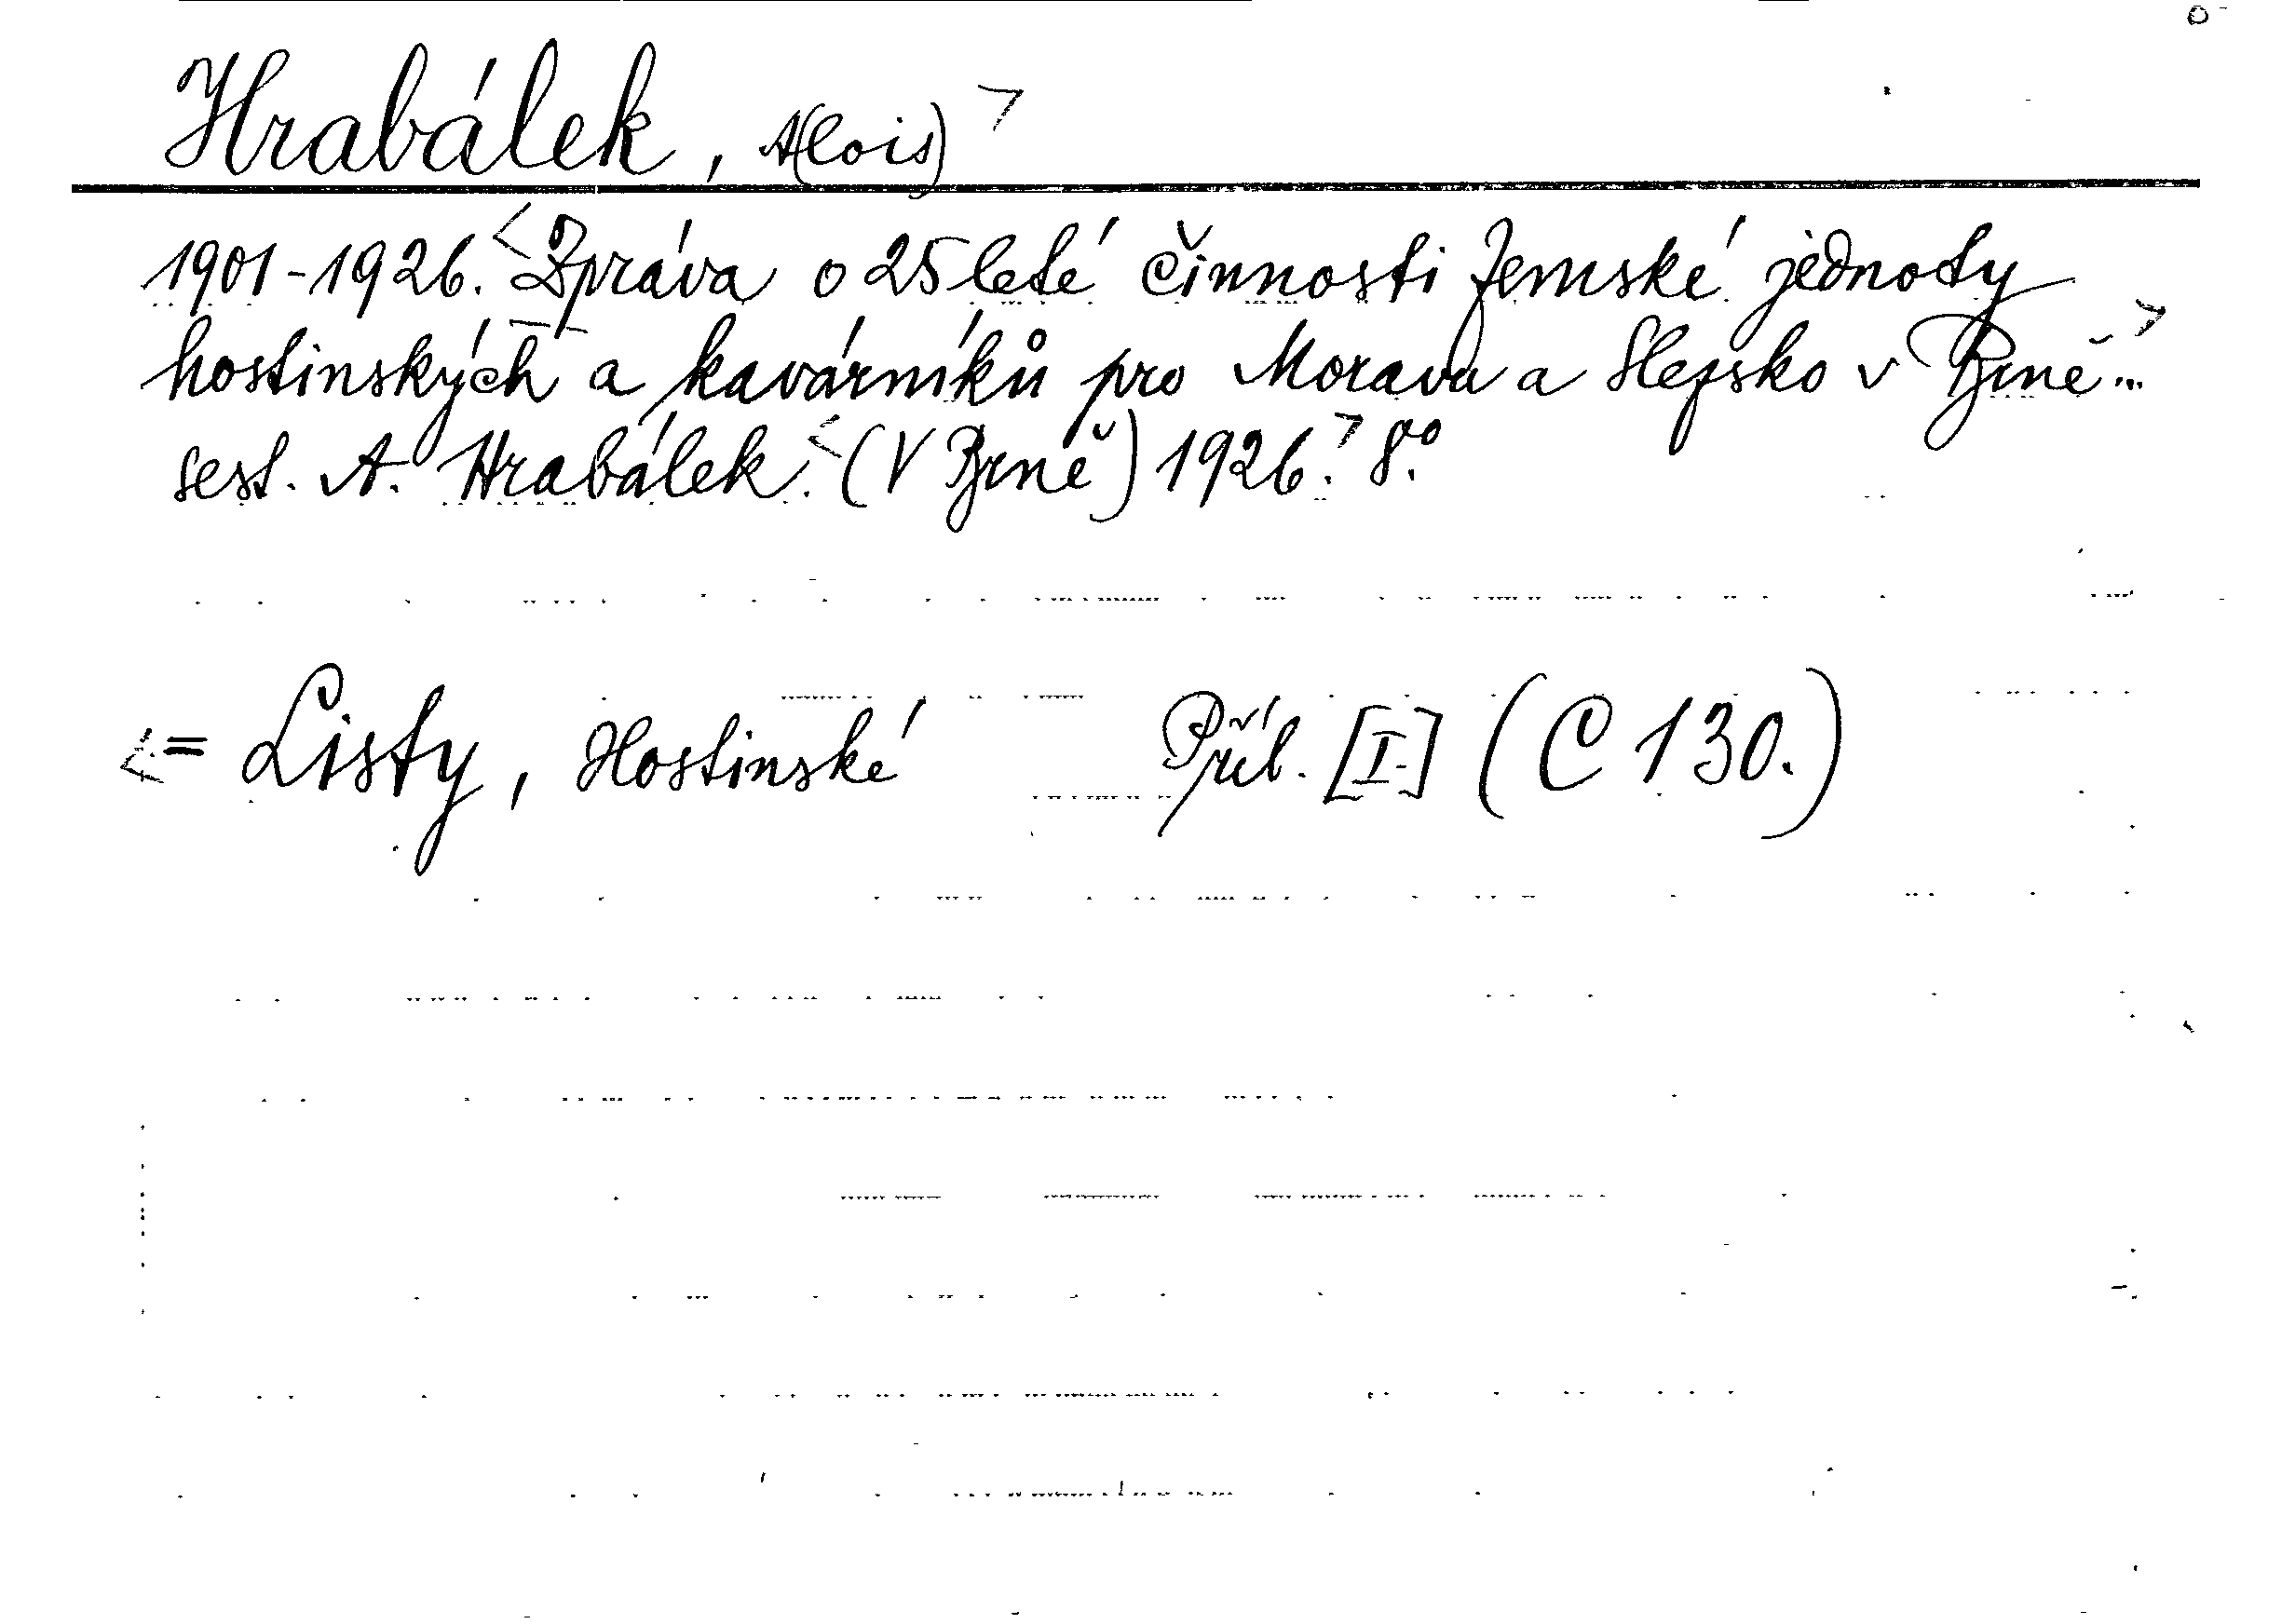 Hrabálek, A(lois)>
1901-1926. <Zpráva o 25leté činnosti Zemské jednoty
hostinských a kavárníků pro Moravu a Slezsko v Brně...>
sest. A. Hrabálek. <(V Brně) 1926.> 8.°
<= Listy, Hostinské Příl. [I.] (C 130.)